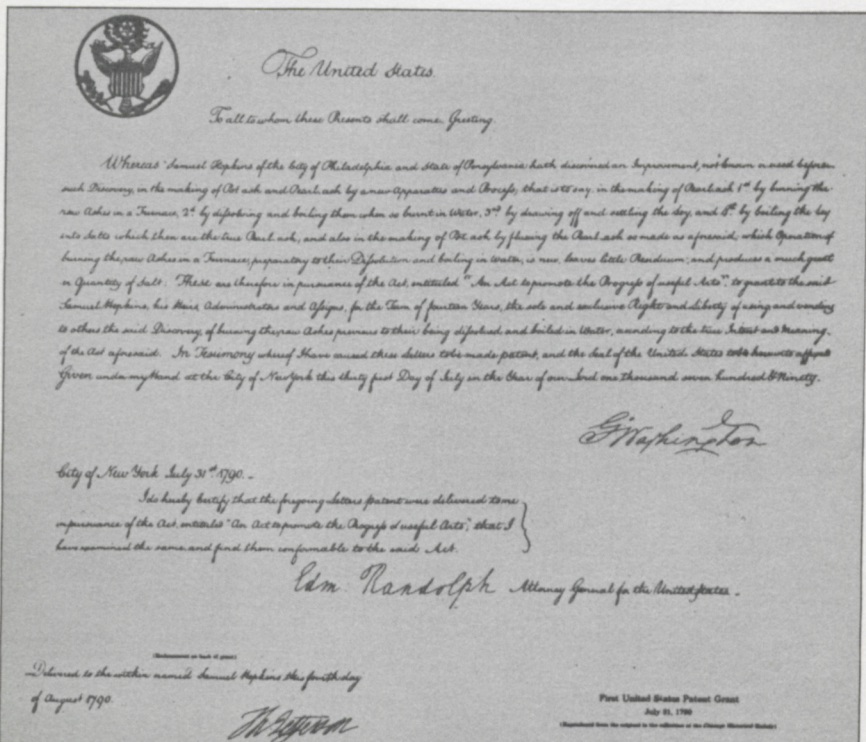 The United States.
To all to whom these Presents shall come, Greeting.
Whereas Samuel Hopkins of the City of Philadelphia and State of Pensylvania hath discovered an Improvement, not known or used before
such Discovery, in the making of Pot ash and Pearl ash by a new Apparatus and Process, that is to say, in the making of Pearl ash 1st by burning the
raw Ashes in a Furnace, 2d by dissolving and boiling them when so burnt in Water, 3rd by drawing off and settling the Ley, and 4th by boiling the Ley
into Salts which then are the true Pearl ash; and also in the making of Pot ash by fluxing the Pearl ash so made as aforesaid; which Operation of
burning the raw Ashes in a Furnace, preparatory to their Dissolution and boiling in Water, is new, leaves little Residuum; and produces a much greater
Quantity of Salt: These are therefore in pursuance of the Act, entituled "An Act to promote the Progress of useful Arts", to grant to the said
Samuel Hopkins, his Heirs, Administrators and Assigns, for the Term of fourteen Years, the sole and exclusive Right and Liberty of using and vending
to others the said Discovery, of burning the raw Ashes previous to their being dissolved and boiled in Water, according to the true Intent and Meaning
of the Act aforesaid. In Testimony whereof I have caused these Letters to be made patent, and the Seal of the United States to be hereunto affixed
Given under my Hand at the City of New York this thirty first Day of July in the Year of our Lord one thousand seven hundred & Ninety.
G Washington
City of New York July 31st 1790. -
I do hereby Certify that the foregoing Letters patent were delivered to me
in pursuance of the Act, entituled "An Act to promote the Progress of useful Arts"; that I
have examined the same, and find them conformable to the said Act.
Edm. Randolph Attorney General for the United States.
(Endorsement on back of grant)
Delivered to the within named Samuel Hopkins this fourth day
of August 1790.
Th Jefferson
First United States Patent Grant
July 31, 1790
(Reproduced from the original in the collection of the Chicago Historical Society)